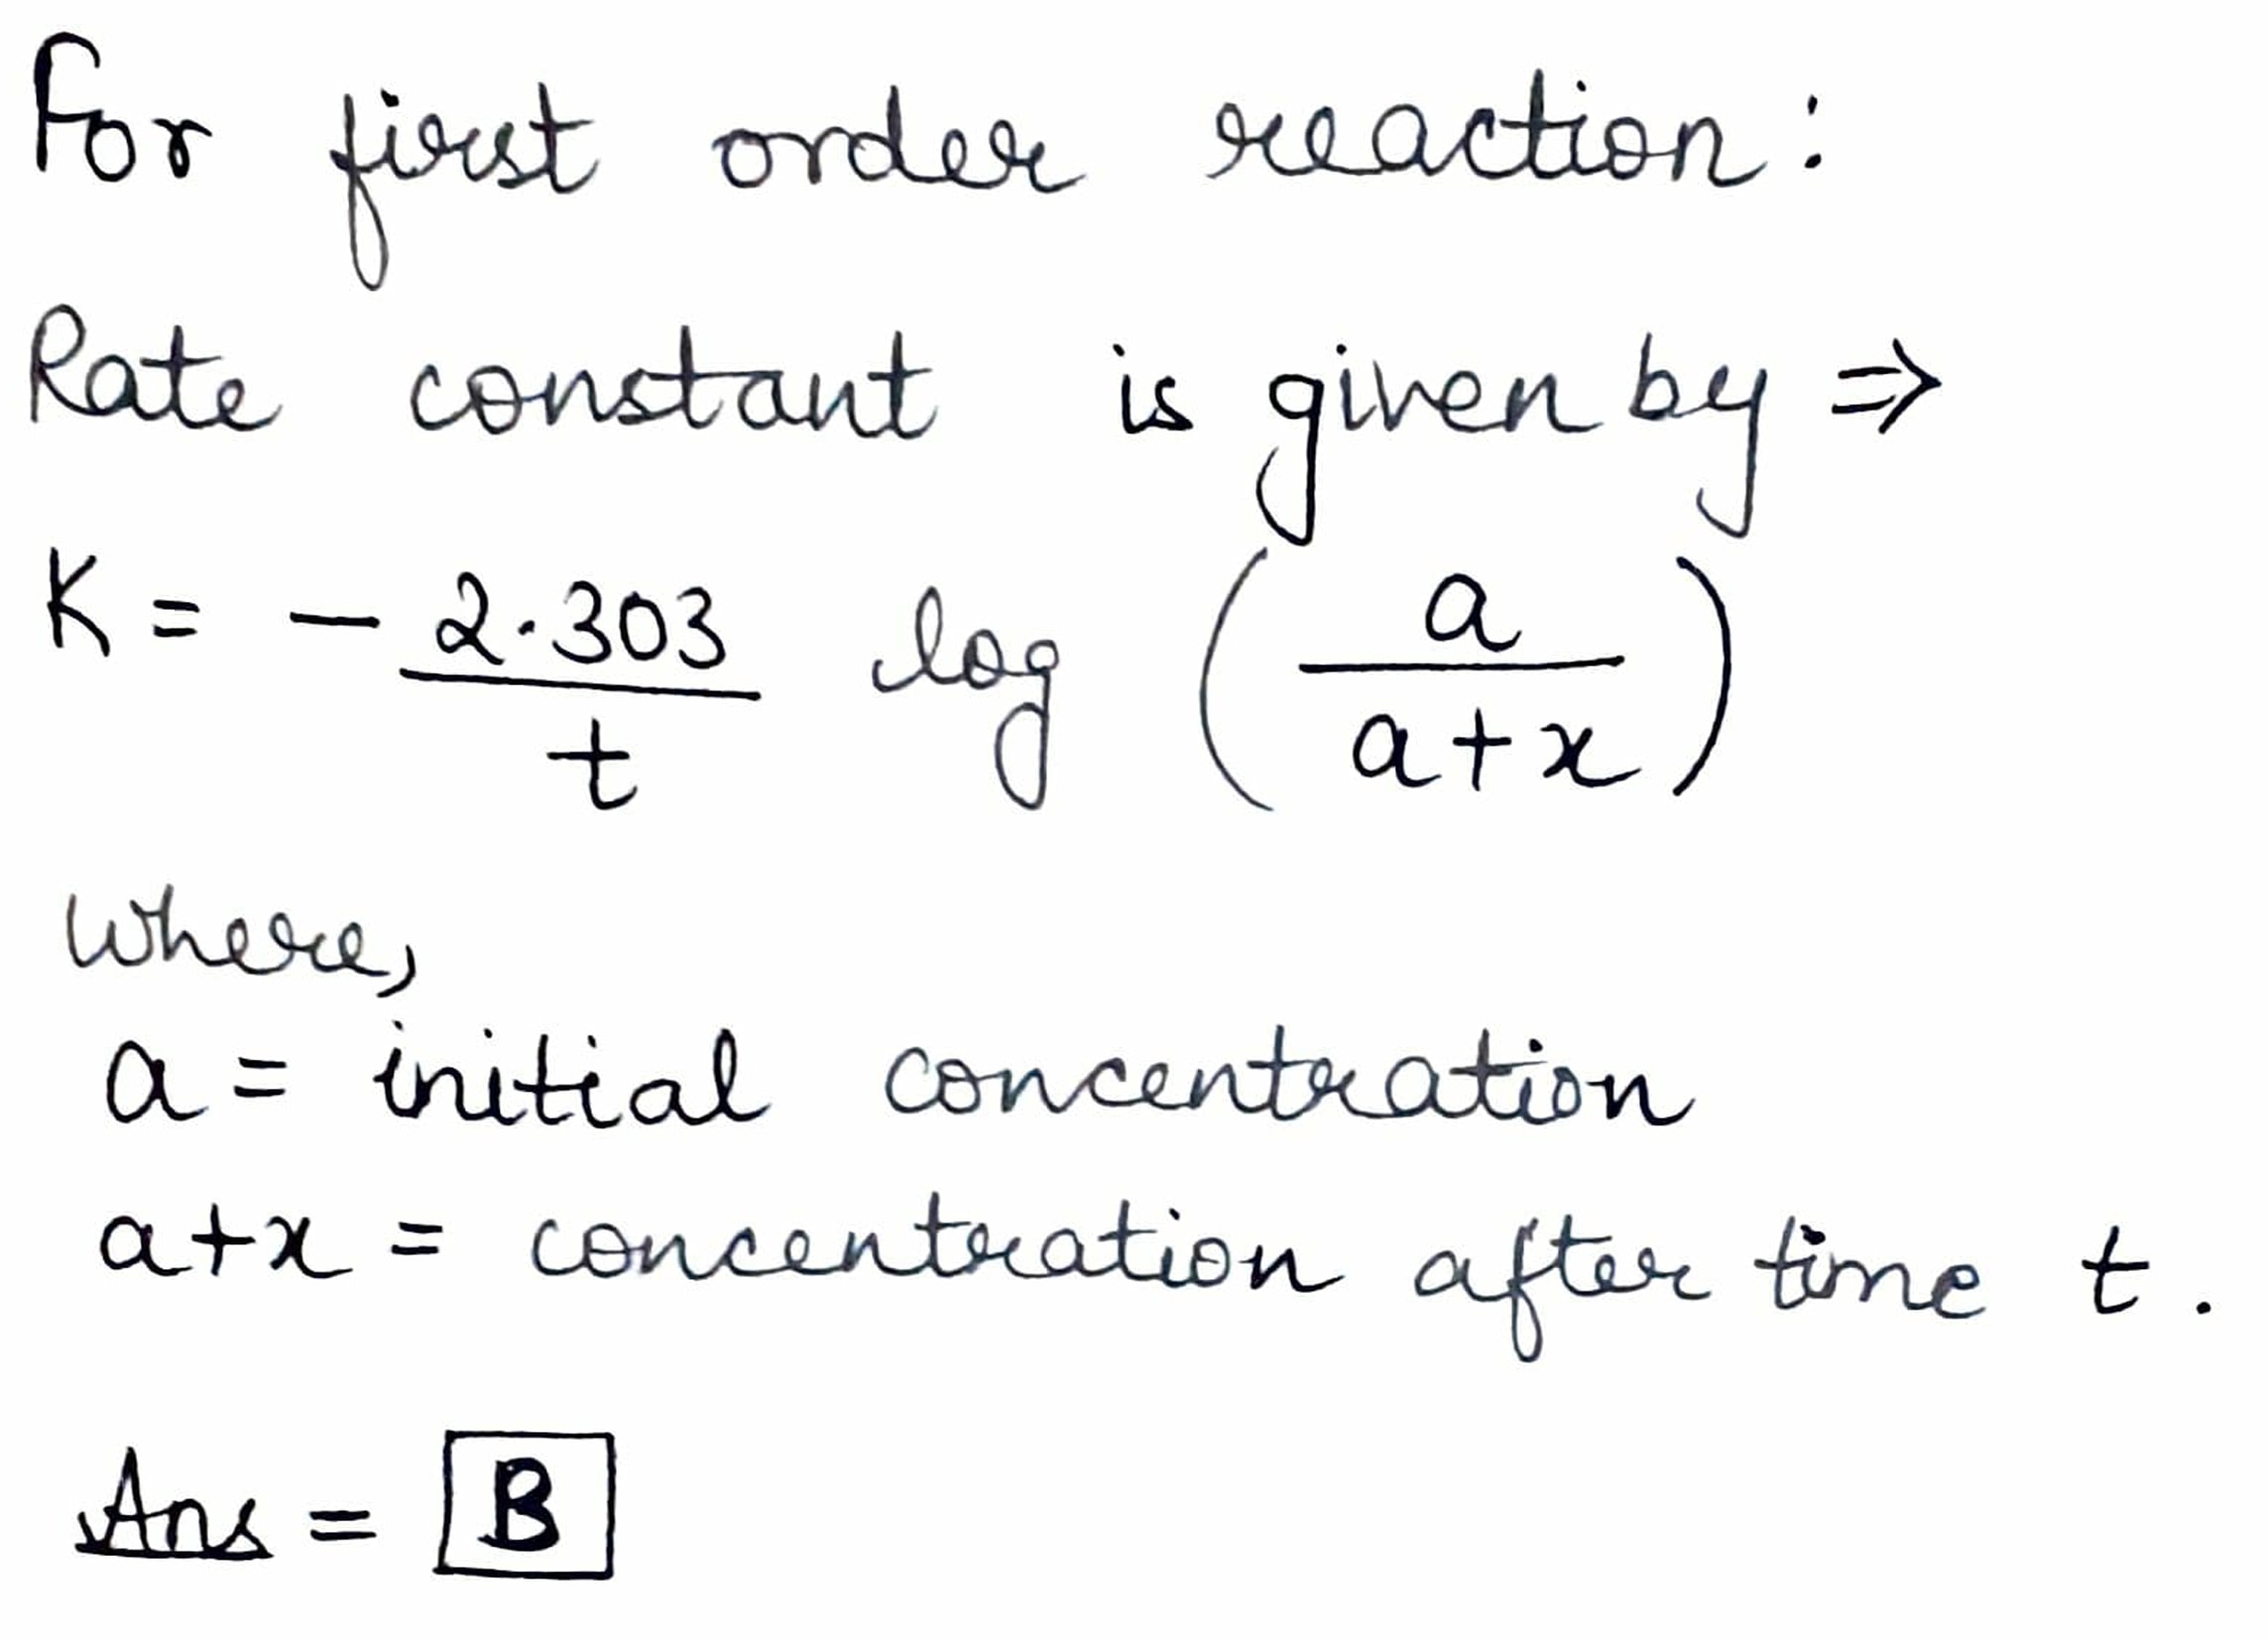 For first order reaction:
Rate constant is given by ⇒
K = - 2.303/t log (a/(a+x))
Where,
a = initial concentration
a+x = concentration after time t.
Ans = B